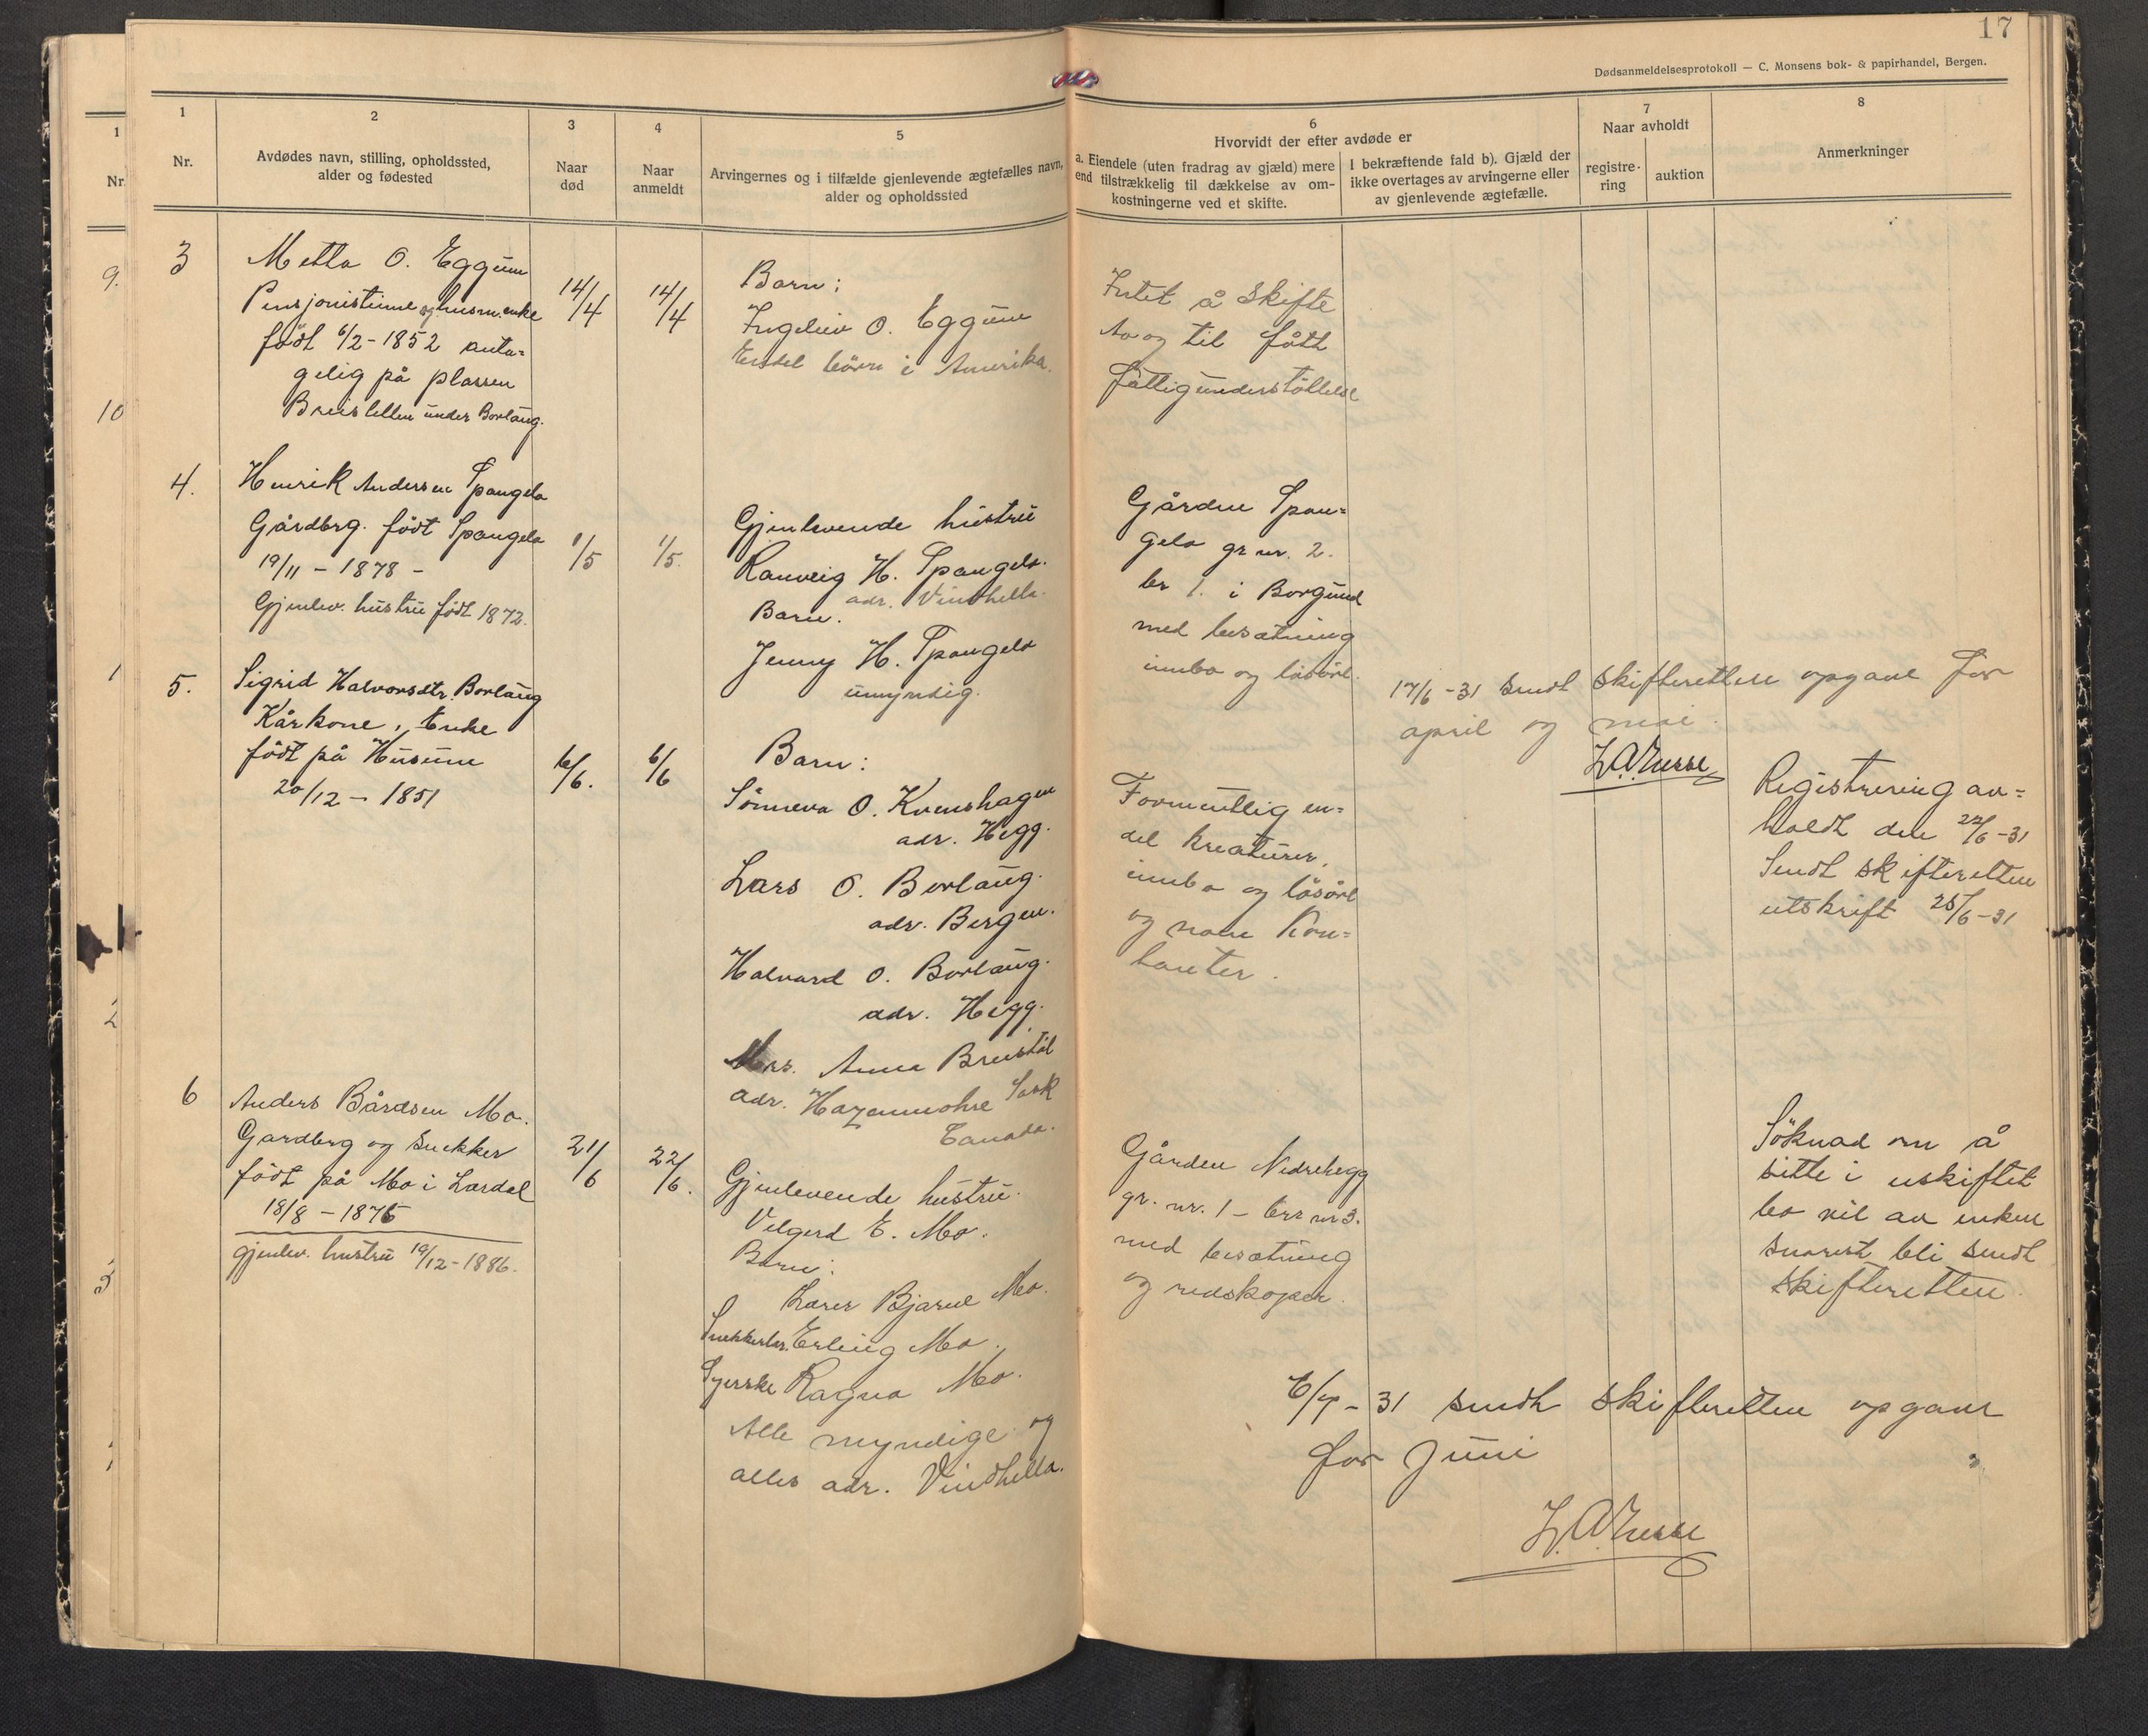 17
Dødsanmeldelsesprotokoll — C. Monsens bok- & papirhandel, Bergen.
1
Nr.
2
Avdødes navn, stilling, opholdssted,
alder og fødested
3
Naar
død
4
Naar
anmeldt
5
Arvingernes og i tilfælde gjenlevende ægtefælles navn,
alder og opholdssted
6
Hvorvidt der efter avdøde er
a. Eiendele (uten fradrag av gjæld) mere
end tilstrækkelig til dækkelse av om-
kostningerne ved et skifte.
I bekræftende fald b). Gjæld der
ikke overtages av arvingerne eller
av gjenlevende ægtefælle.
7
Naar avholdt
registre-
ring
auktion
8
Anmerkninger
1
Nr.
9.
10
1
2
3
3
Metta O. Eggum
Pensjonistinne og husm.enke
født 6/2-1852 anta=
gelig på plassen
under Borlaug.
14/4
14/4
Barn:
Ingeleiv O. Eggum
Endel börn i Amerika.
Intet å skifte
Av og til fått
fattigunderstöttelse
4.
Henrik Andersen Spangelo
Gårdbrg. født Spangelo
19/11 - 1878 -
Gjenlev. hustru født 1872.
1/5
1/5.
Gjenlevende hustru
Ranveig H. Spangelo.
adr. Vindhella.
Barn.
Jenny H. Spangelo
umyndig.
Gården Span=
gelo gr nr. 2.
br 1. i Borgund
med besætning
innbo og lösöre.
17/6-31 sendt skifteretten opgave for
april og mai.
5.
Sigrid Halvorsdtr. Borlaug
Kårkone, Enke
født på Husum
20/12 - 1851
6/6.
6/6
Barn:
Sönneva O. Kvenshagen
adr. Hegg.
Lars O. Borlaug.
adr. Bergen.
Halvard O. Borlaug.
adr. Hegg.
Mrs. Anna Breistöl
adr. Hazenmohre Sask
Canada.
Formentlig en=
del kreaturer,
innbo og lösöre
og noen Kon=
tanter.
Registrering av=
holdt den 22/6-31
Sendt skifteretten
utskrift 25/6-31
6
Anders Bårdsen Mo.
Gardbrg og Snekker
født på Mo i Lærdal
18/8 - 1875
gjenlev. hustru 19/12-1886.
21/6
22/6.
Gjenlevende hustru.
Velgerd E. Mo.
Barn:
Lærer Bjarne Mo.
Snekkerlær. Erling Mo.
Syerske Ragna Mo.
Alle myndige og
alles adr. Vindhella.
Gården Nedrehegg
gr. nr. 1 - br nr 3.
med besætning
og redskaper.
Söknad om å
sitte i uskiftet
bo vil av enken
snarest bli sendt
skifteretten.
6/7-31 sendt skifteretten opgave
for Juni